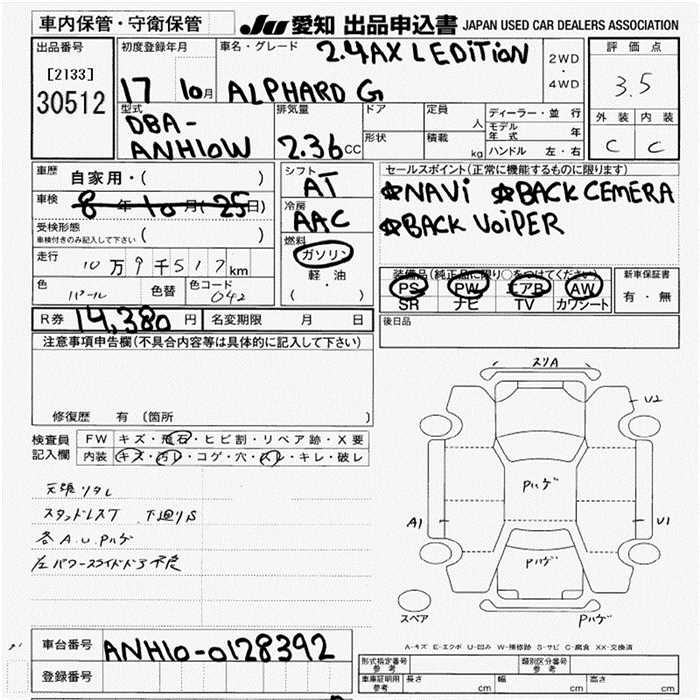 車内保管・守衛保管 JU 愛知 出品申込書 JAPAN USED CAR DEALERS ASSOCIATION
出品番号 初度登録年月 車名・グレード 2.4AX L EDiTiON 2WD・4WD 評価点
[2133] 17 10月 ALPHARD G 3.5
30512 型式 排気量 ドア 定員 人 ディーラー・並行 外装 内装
DBA- 形状 積載 kg モデル年式 年 C C
ANH10W 2.36cc ハンドル 左・右
車歴 自家用・( ) シフト AT セールスポイント(正常に機能するものに限ります)
車検 8年10月(25日) 冷房 AAC ☆NAVi ☆BACK CEMERA
受検形態 車検付きのみ記入して下さい ( ) 燃料 ☆BACK VoiPER
走行 10万9千517km ガソリン 装備品(純正品に限り○をつけてください) 新車保証書
色 パール 色替 色コード 042 軽・油 PS PW エアB AW 有・無
( ) SR ナビ TV カワシート
R券 14,380円 名変期限 月 日 後日品
注意事項申告欄(不具合内容等は具体的に記入して下さい)
修復歴 有 (箇所 )
スリA
U2
検査員記入欄 FW キズ・飛石・ヒビ割・リペア跡・X要
内装 キズ・汚レ・コゲ・穴・スレ・キレ・破レ
天張リタレ
スタンドレスT 下廻りS
各A.U.Pハゲ
左パワースライドドア不良
Pハゲ
A1 U1
Pハゲ
スペア Pハゲ
A-キズ E-エクボ U-凹み W-補修跡 S-サビ C-腐食 XX-交換済
車台番号 ANH10-0128392 形式指定番号 参考 類別区分番号 参考
登録番号 車庫証明用 参考 長さ cm 幅 cm 高さ cm